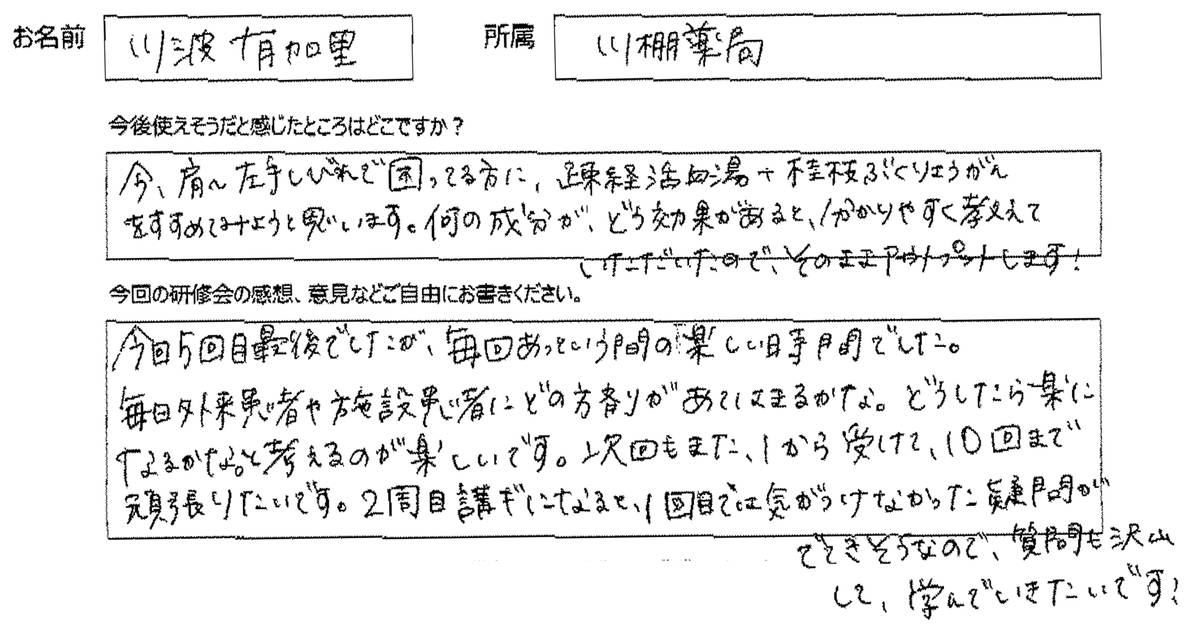 お名前 川波 有加里 所属 川棚薬局
今後使えそうだと感じたところはどこですか？
今、肩〜左手しびれで困ってる方に、疎経活血湯＋桂枝ぶくりょうがん
をすすめてみようと思います。何の成分が、どう効果があると、分かりやすく教えて
いただいたので、そのままアウトプットします！
今回の研修会の感想、意見などご自由にお書きください。
今回5回目最後でしたが、毎回あっという間の楽しい時間でした。
毎日外来患者や施設患者にどの方剤があてはまるかな。どうしたら楽に
なるかな。と考えるのが楽しいです。次回もまた、1から受けて、10回まで
頑張りたいです。2周目講ぎになると、1回目では気がつけなかった疑問が
でてきそうなので、質問も沢山
して、学んでいきたいです！